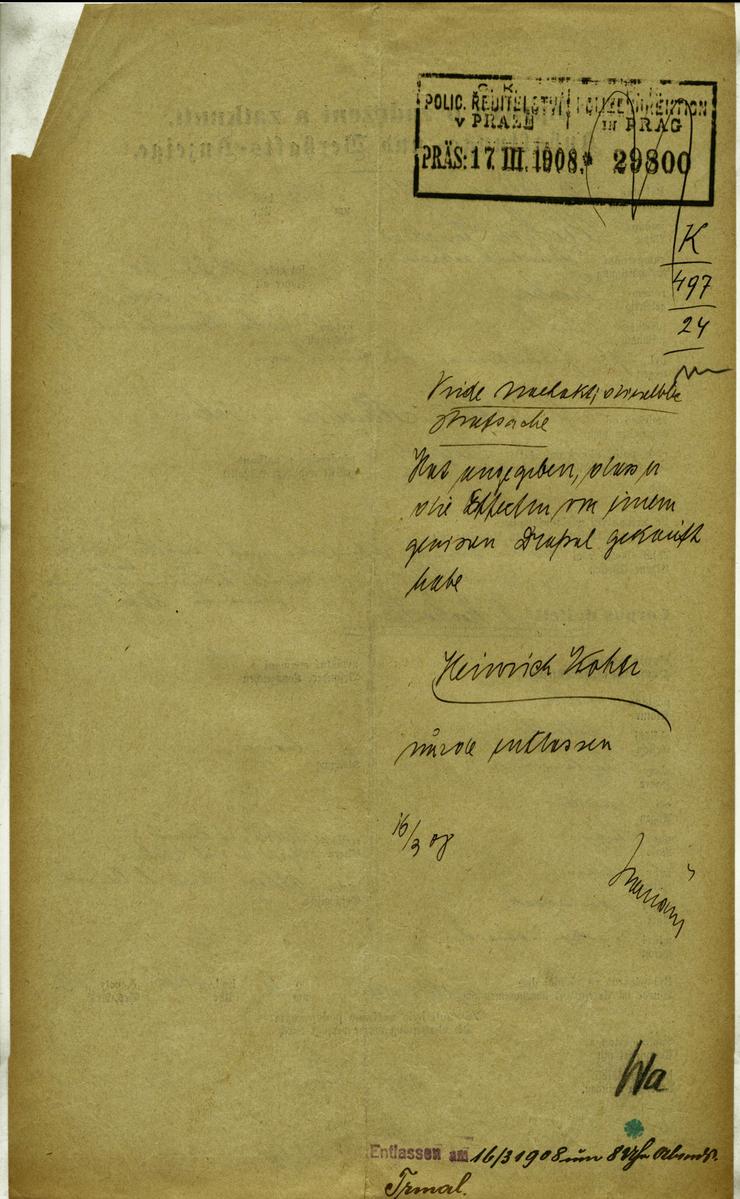 C. K.
POLIC. ŘEDITELSTVÍ POLIZEI DIREKTION
V PRAZE IN PRAG
PRÄS: 17. III. 1908. * 29800
K
497
24
Vide
Strafsache
Hat angegeben, dass er
die Effecten von einem
gewissen Drapal gekauft
habe
Heinrich Kohn
wurde entlassen
16/3 08
Wa
Entlassen am 16/3 1908 um 8 Uhr Abends.
Trmal.